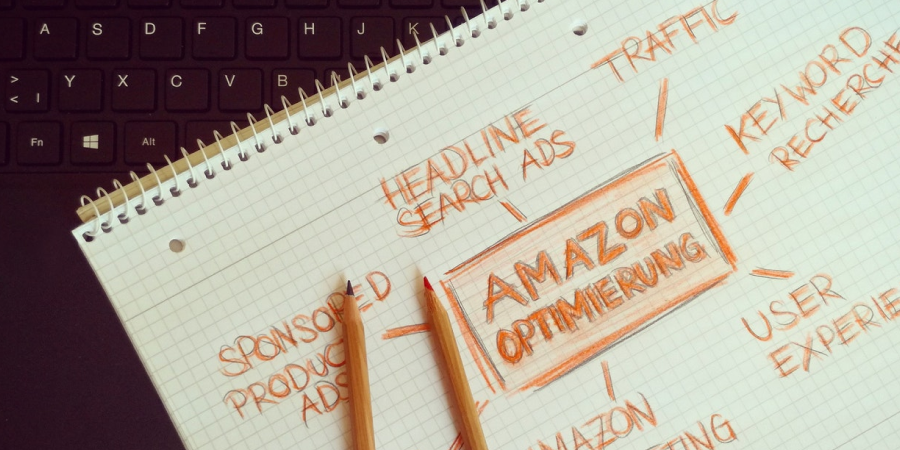 A S D F G H J K
>
< | Y X C V B N
Fn Alt
TRAFFIC
KEYWORD
RECHERCHE
HEADLINE
SEARCH ADS
AMAZON
OPTIMIERUNG
SPONSORED
PRODUCT
ADS
USER
EXPERIE
AMAZON